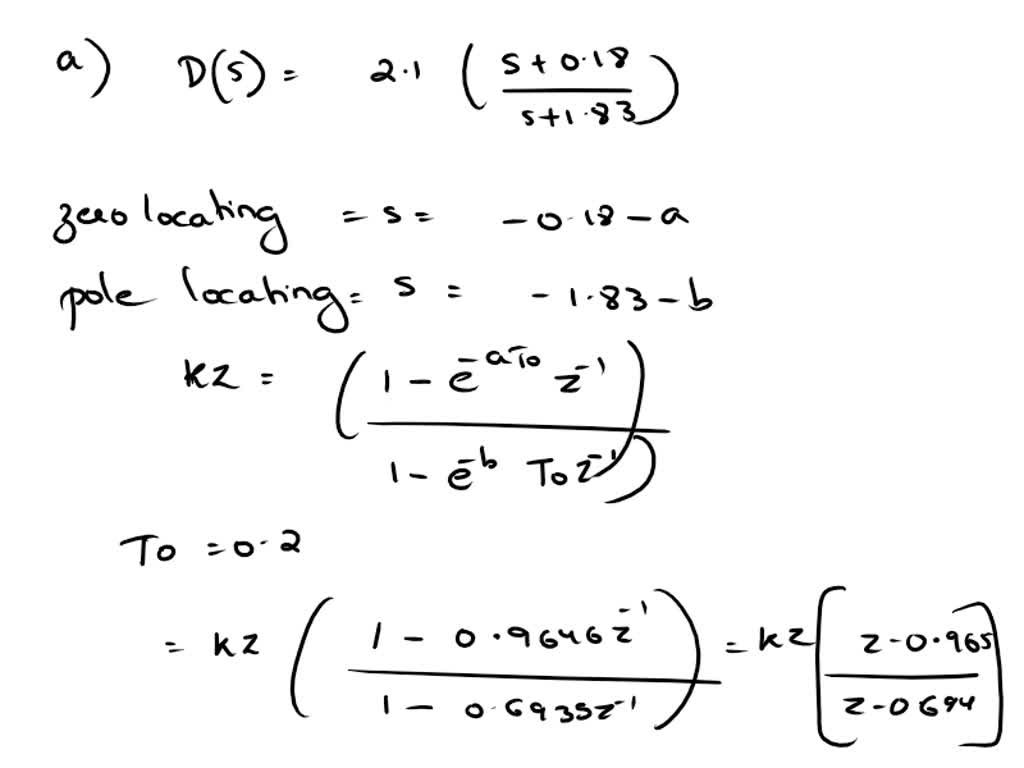 a) D(s) = 2.1 ( s + 0.18 / s + 1.83 )
zero locating = s = - 0.18 - a
pole locating = s = - 1.83 - b
kz = ( 1 - e^-aTo z^-1 / 1 - e^-b To z^-1 )
To = 0.2
= kz ( 1 - 0.9646 z^-1 / 1 - 0.6935 z^-1 ) = kz [ z - 0.965 / z - 0 694 ]